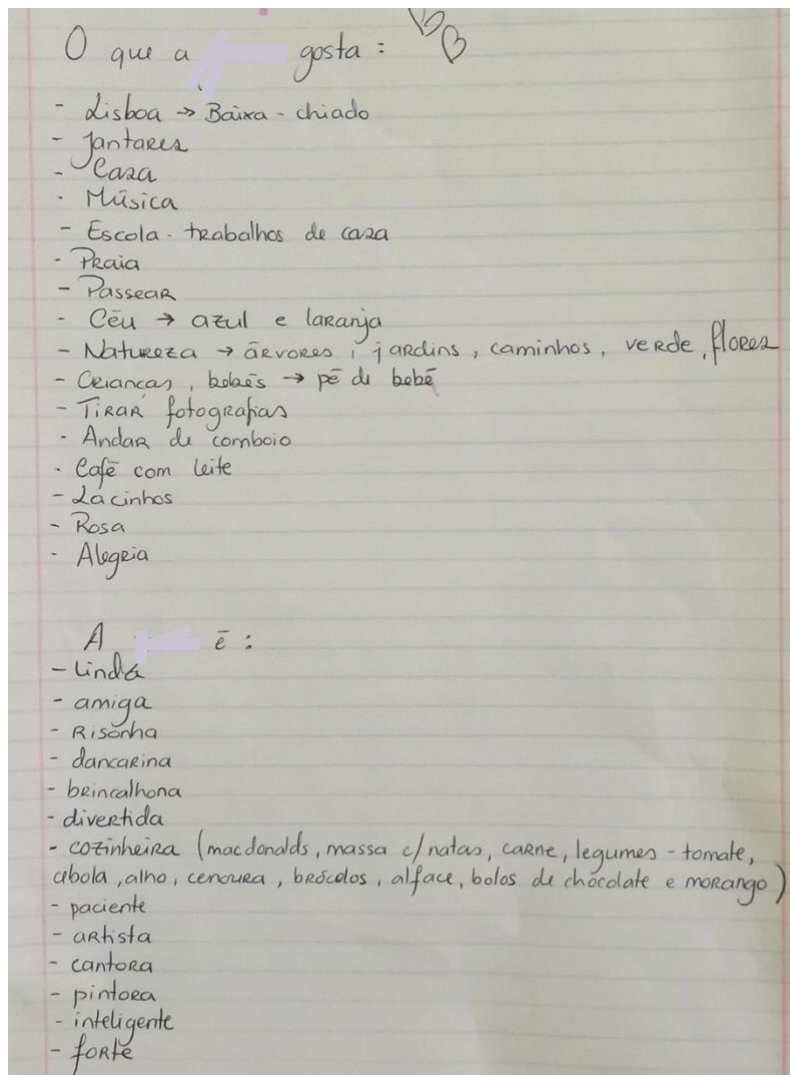 O que a gosta:
- Lisboa → Baixa - chiado
- Jantares
- Casa
- Música
- Escola - trabalhos de casa
- Praia
- Passear
- Céu → azul e laranja
- Natureza → árvores, jardins, caminhos, verde, flores
- Crianças, bebés → pé de bebé
- Tirar fotografias
- Andar de comboio
- Café com leite
- Lacinhos
- Rosa
- Alegria
A é:
- linda
- amiga
- Risonha
- dançarina
- brincalhona
- divertida
- cozinheira (macdonalds, massa c/ natas, carne, legumes - tomate,
cebola, alho, cenoura, brócolos, alface, bolos de chocolate e morango)
- paciente
- artista
- cantora
- pintora
- inteligente
- forte